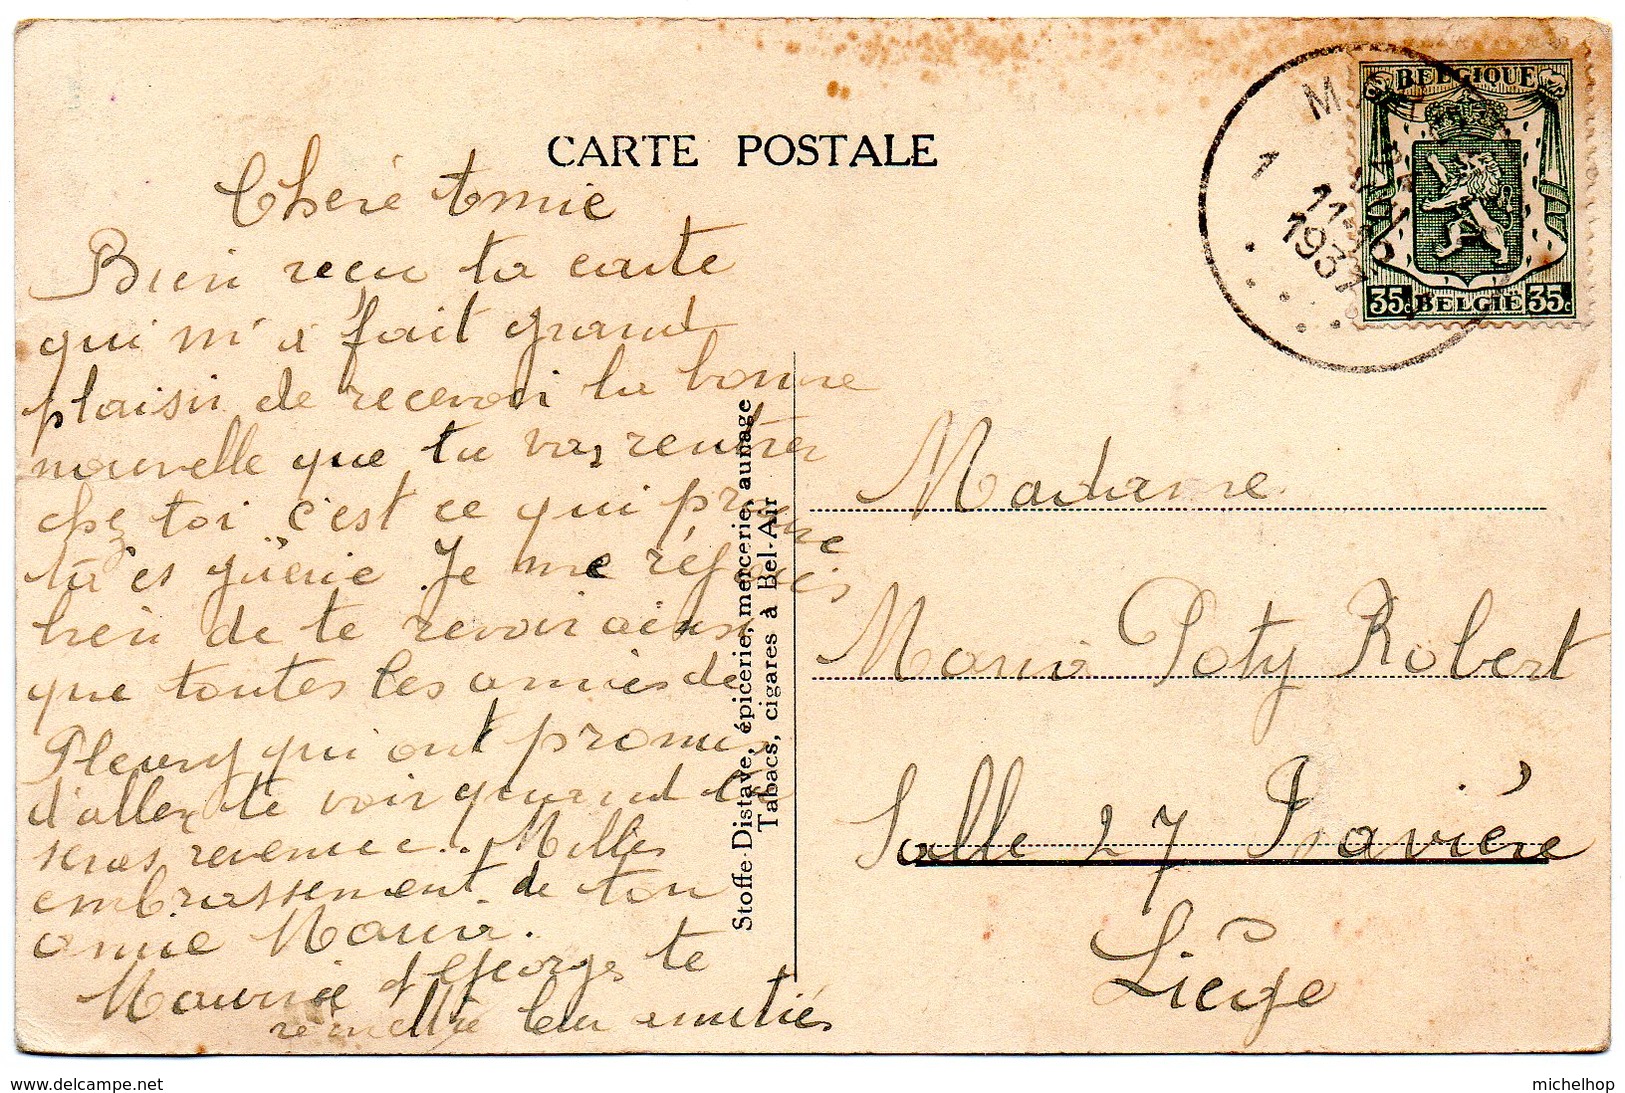 CARTE POSTALE
Cheré Amie
Bien recu ta carte
qui m'a fait grand
plaisir de recevoir la bonne
nouvelle que tu vas rentrer
chez toi c'est ce qui prouve
tu es guérie. Je me réjouis
bien de te revoir ainsi
que toutes les amies de
Fleury qui ont promis
d'aller te voir quand tu
seras revenue. Milles
embrassement de ton
amie Maria.
Maurice et Georges te
remettre leur amitiés
Stoffe-Distave, épicerie, mercerie, aunage
Tabacs, cigares à Bel-Air
BELGIQUE
35c BELGIË 35c
1 11
1937
Madame
Maria Poty Robert
Salle 27 Bavière
Liège
www.delcampe.net
michelhop